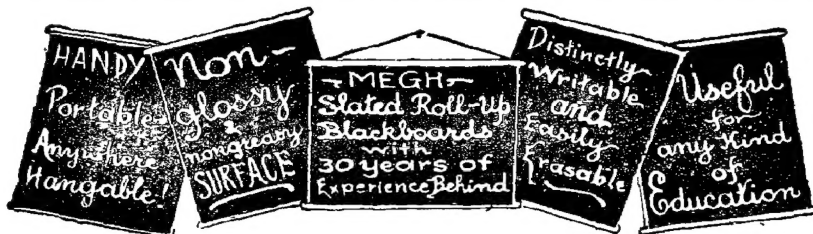 HANDY
Portable &
Anywhere
Hangable!
Non-
glossy
&
nongreasy
SURFACE
-MEGH-
Slated Roll-Up
Blackboards
with
30 years of
Experience Behind
Distinctly
Writable
and
Easily
Erasable
Useful
for
any Kind
of
Education